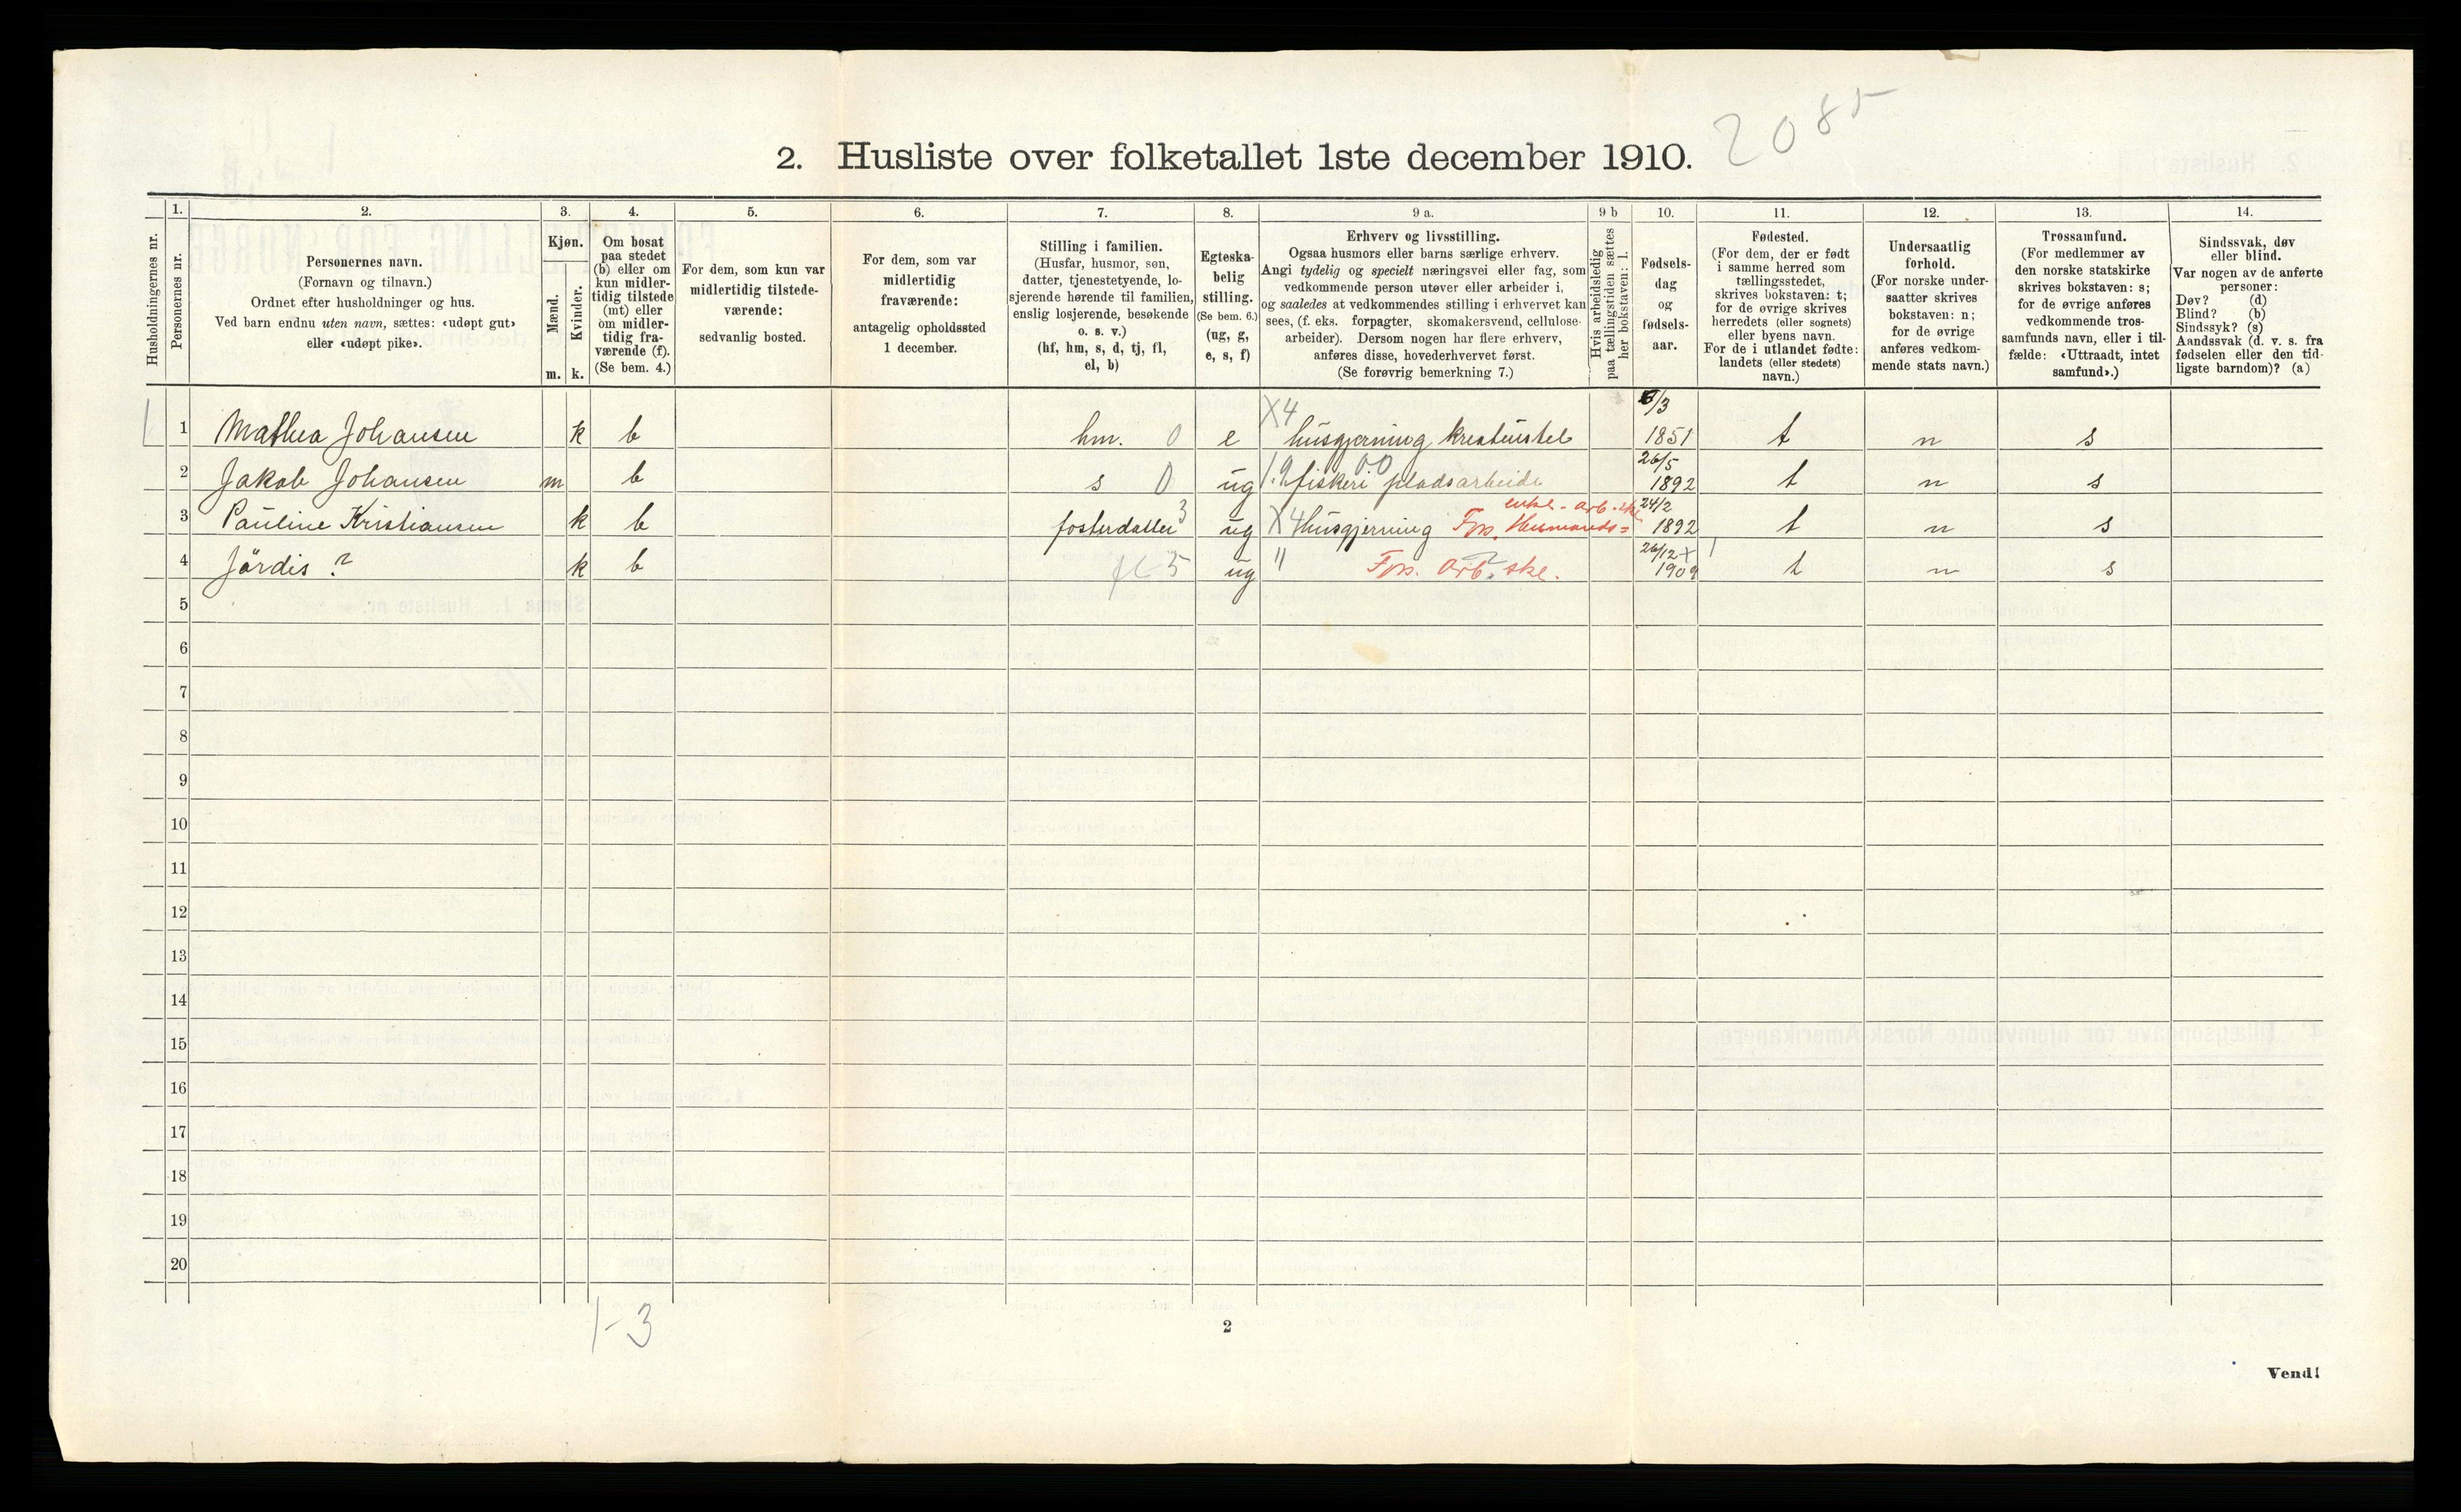 2085
2. Husliste over folketallet 1ste december 1910.
Husholdningernes nr.
1.
Personernes nr.
2.
Personernes navn.
(Fornavn og tilnavn.)
Ordnet efter husholdninger og hus.
Ved barn endnu uten navn, sættes: «udøpt gut»
eller «udøpt pike».
3.
Kjøn.
Mænd.
Kvinder.
m. k.
4.
Om bosat
paa stedet
(b) eller om
kun midler-
tidig tilstede
(mt) eller
om midler-
tidig fra-
værende (f).
(Se bem. 4.)
5.
For dem, som kun var
midlertidig tilstede-
værende:
sedvanlig bosted.
6.
For dem, som var
midlertidig
fraværende:
antagelig opholdssted
1 december.
7.
Stilling i familien.
(Husfar, husmor, søn,
datter, tjenestetyende, lo-
sjerende hørende til familien,
enslig losjerende, besøkende
o. s. v.)
(hf, hm, s, d, tj, fl,
el, b)
8.
Egteska-
belig
stilling.
(Se bem. 6.)
(ug, g,
e, s, f)
9 a.
Erhverv og livsstilling.
Ogsaa husmors eller barns særlige erhverv.
Angi tydelig og specielt næringsvei eller fag, som
vedkommende person utøver eller arbeider i,
og saaledes at vedkommendes stilling i erhvervet kan
sees, (f. eks. forpagter, skomakersvend, cellulose-
arbeider). Dersom nogen har flere erhverv,
anføres disse, hovederhvervet først.
(Se forøvrig bemerkning 7.)
9 b
Hvis arbeidsledig
paa tællingstiden sættes
her bokstaven: l.
10.
Fødsels-
dag
og
fødsels-
aar.
11.
Fødested.
(For dem, der er født
i samme herred som
tællingsstedet,
skrives bokstaven: t;
for de øvrige skrives
herredets (eller sognets)
eller byens navn.
For de i utlandet fødte:
landets (eller stedets)
navn.)
12.
Undersaatlig
forhold.
(For norske under-
saatter skrives
bokstaven: n;
for de øvrige
anføres vedkom-
mende stats navn.)
13.
Trossamfund.
(For medlemmer av
den norske statskirke
skrives bokstaven: s;
for de øvrige anføres
vedkommende tros-
samfunds navn, eller i til-
fælde: «Uttraadt, intet
samfund».)
14.
Sindssvak, døv
eller blind.
Var nogen av de anførte
personer:
Døv? (d)
Blind? (b)
Sindssyk? (s)
Aandssvak (d. v. s. fra
fødselen eller den tid-
ligste barndom)? (a)
X4 /3
1 1 Mathea Johansen k b hm. 0 e husgjerning kreaturstel 1851 t n s
00 26/5
2 Jakob Johansen m b s 0 ug 1.9 fiskeri pladsarbeide 1892 t n s
enke - arb. ske 24/2
3 Pauline Kristiansen k b fosterdatter 3 ug X4 husgjerning Fors. Husmands= 1892 t n s
26/12 X 1
4 Jördis ? k b fl 5 ug " Fors. Arb. ske. 1909 t n s
5
6
7
8
9
10
11
12
13
14
15
16
17
18
19
20
1-3
2
Vend!